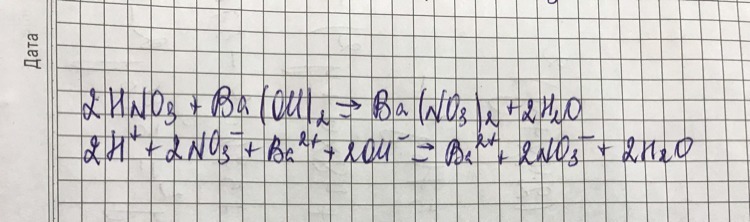 Дата
2HNO₃ + Ba(OH)₂ ⇒ Ba(NO₃)₂ + 2H₂O
2H⁺ + 2NO₃⁻ + Ba²⁺ + 2OH⁻ ⇒ Ba²⁺ + 2NO₃⁻ + 2H₂O